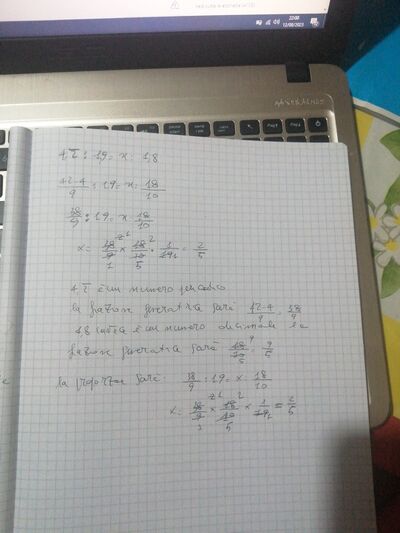 22:08
12/08/2023
4,2̅ : 19 = x : 1,8
42-4/9 : 19 = x : 18/10
38/9 : 19 = x : 18/10
x = 38/9 × 18/10 · 1/19 = 2/5
4,2̅ è un numero periodico
la frazione generatrice sarà 42-4/9 = 38/9
1,8 è un numero decimale la
frazione generatrice sarà 18/10 = 9/5
la proporzione sarà: 38/9 : 19 = x : 18/10
x = 38/9 × 18/10 × 1/19 = 2/5